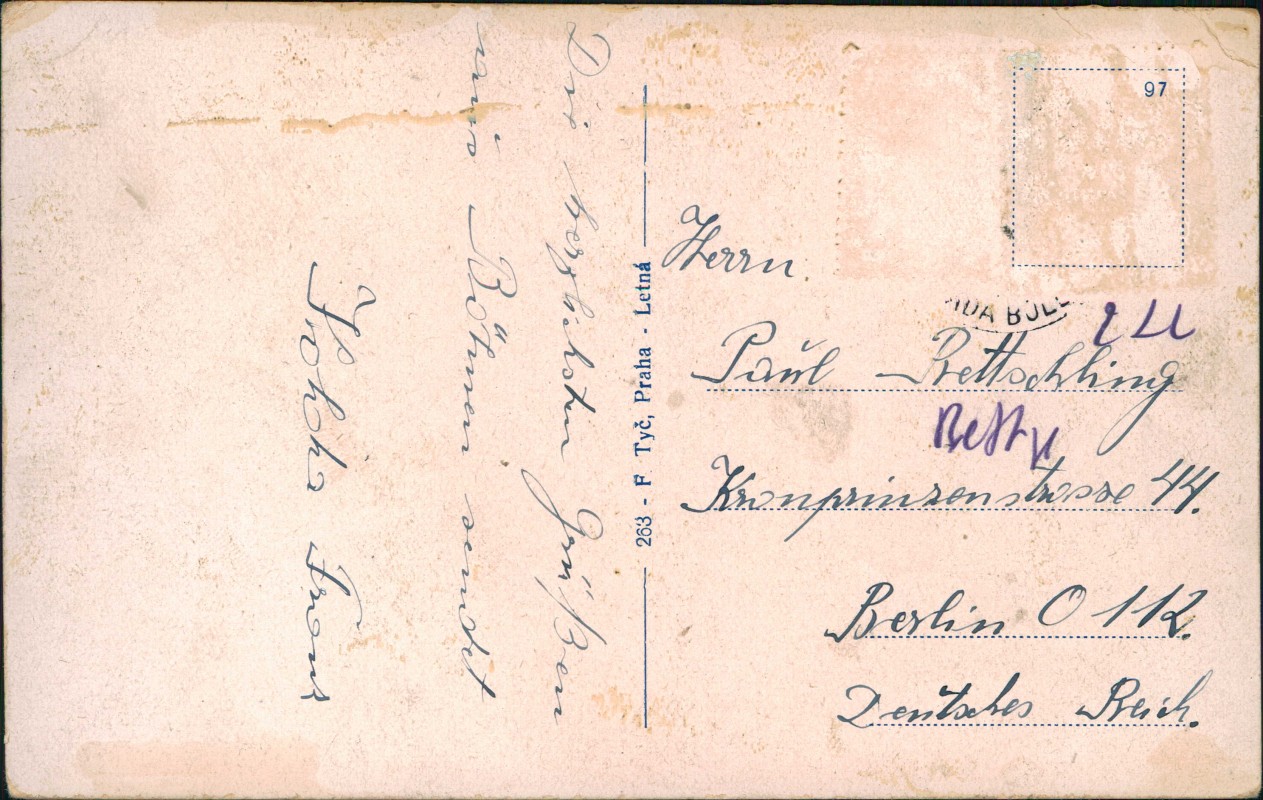 Die herzlichsten Grüßen
aus Böhmen sendet
Franz
263 - F Tyč, Praha - Letná
97
Herrn
Paul Rettschling
Kronprinzenstrasse 44.
Berlin O 112.
Deutsches Reich.